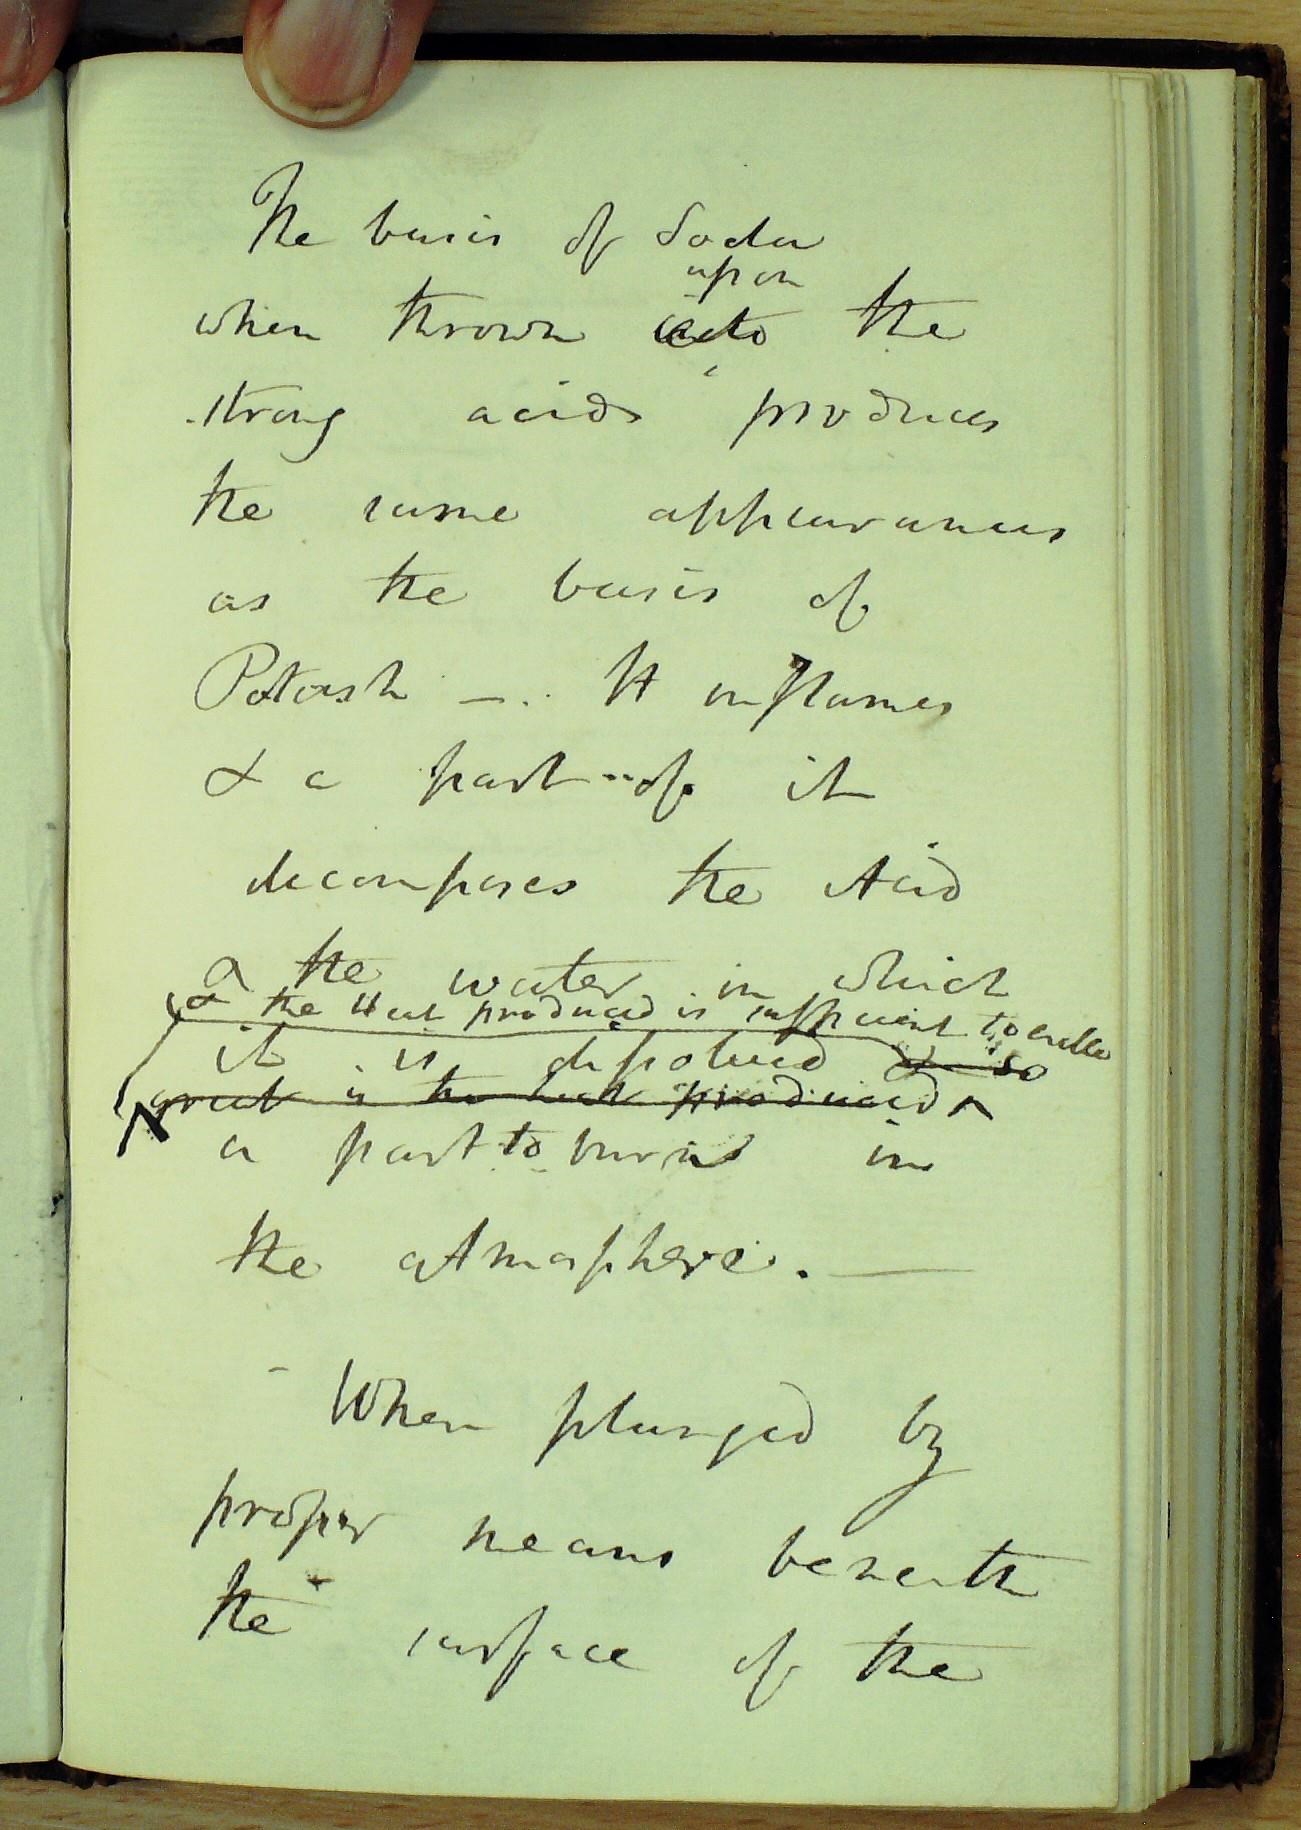 The basis of Soda
upon
when thrown into the
strong acids produces
the same appearances
as the basis of
Potash —. It inflames
& a part of it
decomposes the Acid
& the water in which
& the Heat produced is sufficient to enable
it is dissolved & so
great is the heat produced
a part to burn in
the atmosphere. —
- When plunged by
proper means beneath
the surface of the